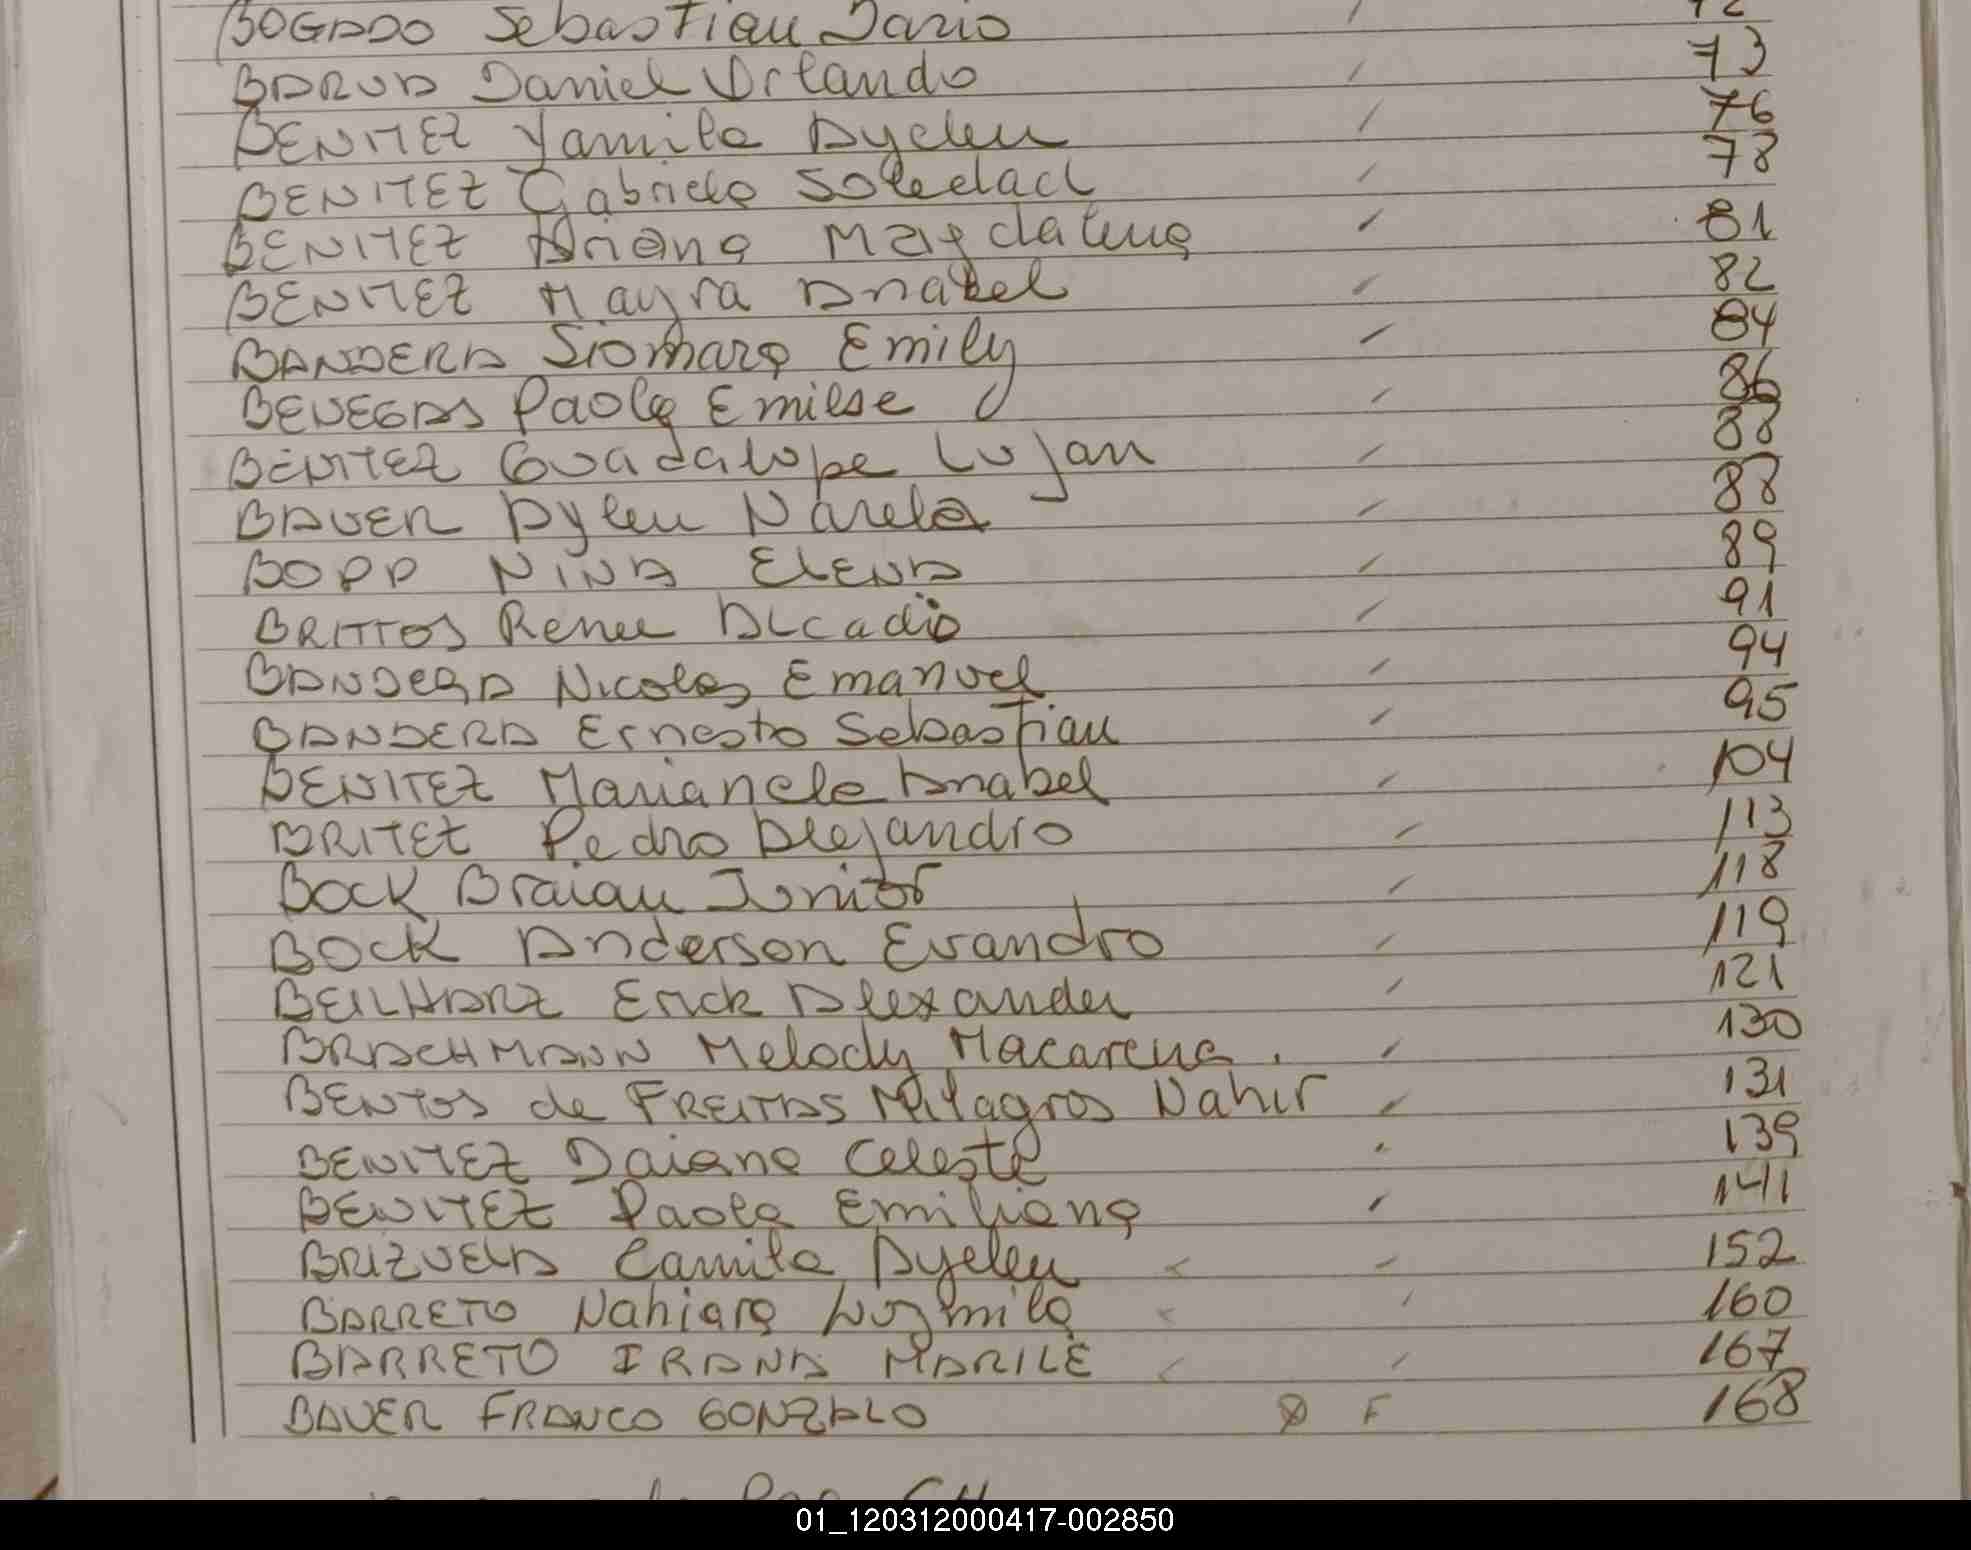 BOGADO Sebastian Dario / 72
BARUA Daniel Orlando / 73
BENITEZ Yamila Ayelen / 76
BENITEZ Gabriela Soledad / 78
BENITEZ Ariana Magdalena / 81
BENITEZ Mayra Anabel / 82
BANDERA Siomara Emily / 84
BENEGAS Paola Emilse / 86
BENITEZ Guadalupe Lujan / 88
BAUER Aylen Narela / 88
BOPP NINA ELENA / 89
BRITTOS Renee Alcadio / 91
BANDERA Nicolas Emanuel / 94
BANDERA Ernesto Sebastian / 95
BENITEZ Marianela Anabel / 104
BRITEZ Pedro Alejandro / 113
BOCK Braian Junior / 118
BOCK Anderson Evandro / 119
BEILHARZ Erick Alexander / 121
BRACHMANN Melody Macarena. / 130
BENTOS de FREITAS Milagros Nahir / 131
BENITEZ Daiana Celeste 139
BENITEZ Paola Emiliana / 141
BRIZUELA Camila Ayelen / 152
BARRETO Nahiara Luzmila / 160
BARRETO IRANA MARILE / 167
BAUER FRANCO GONZALO F 168
01_120312000417-002850